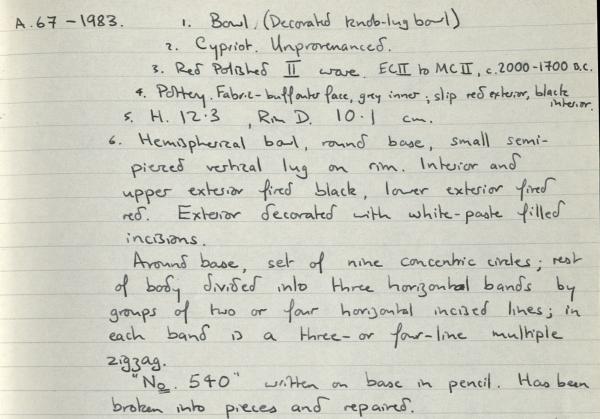 A.67-1983. 1. Bowl, (Decorated knob-lug bowl)
2. Cypriot. Unprovenanced.
3. Red Polished II ware. ECII to MCII, c.2000-1700 B.C.
4. Pottery. Fabric-buff outer face, grey inner; slip red exterior, black interior.
5. H. 12.3, Rim D. 10.1 cm.
6. Hemispherical bowl, round base, small semi-
pierced vertical lug on rim. Interior and
upper exterior fired black, lower exterior fired
red. Exterior decorated with white-paste filled
incisions.
Around base, set of nine concentric circles; rest
of body divided into three horizontal bands by
groups of two or four horizontal incised lines; in
each band is a three- or four-line multiple
zigzag.
"No. 540" written on base in pencil. Has been
broken into pieces and repaired.